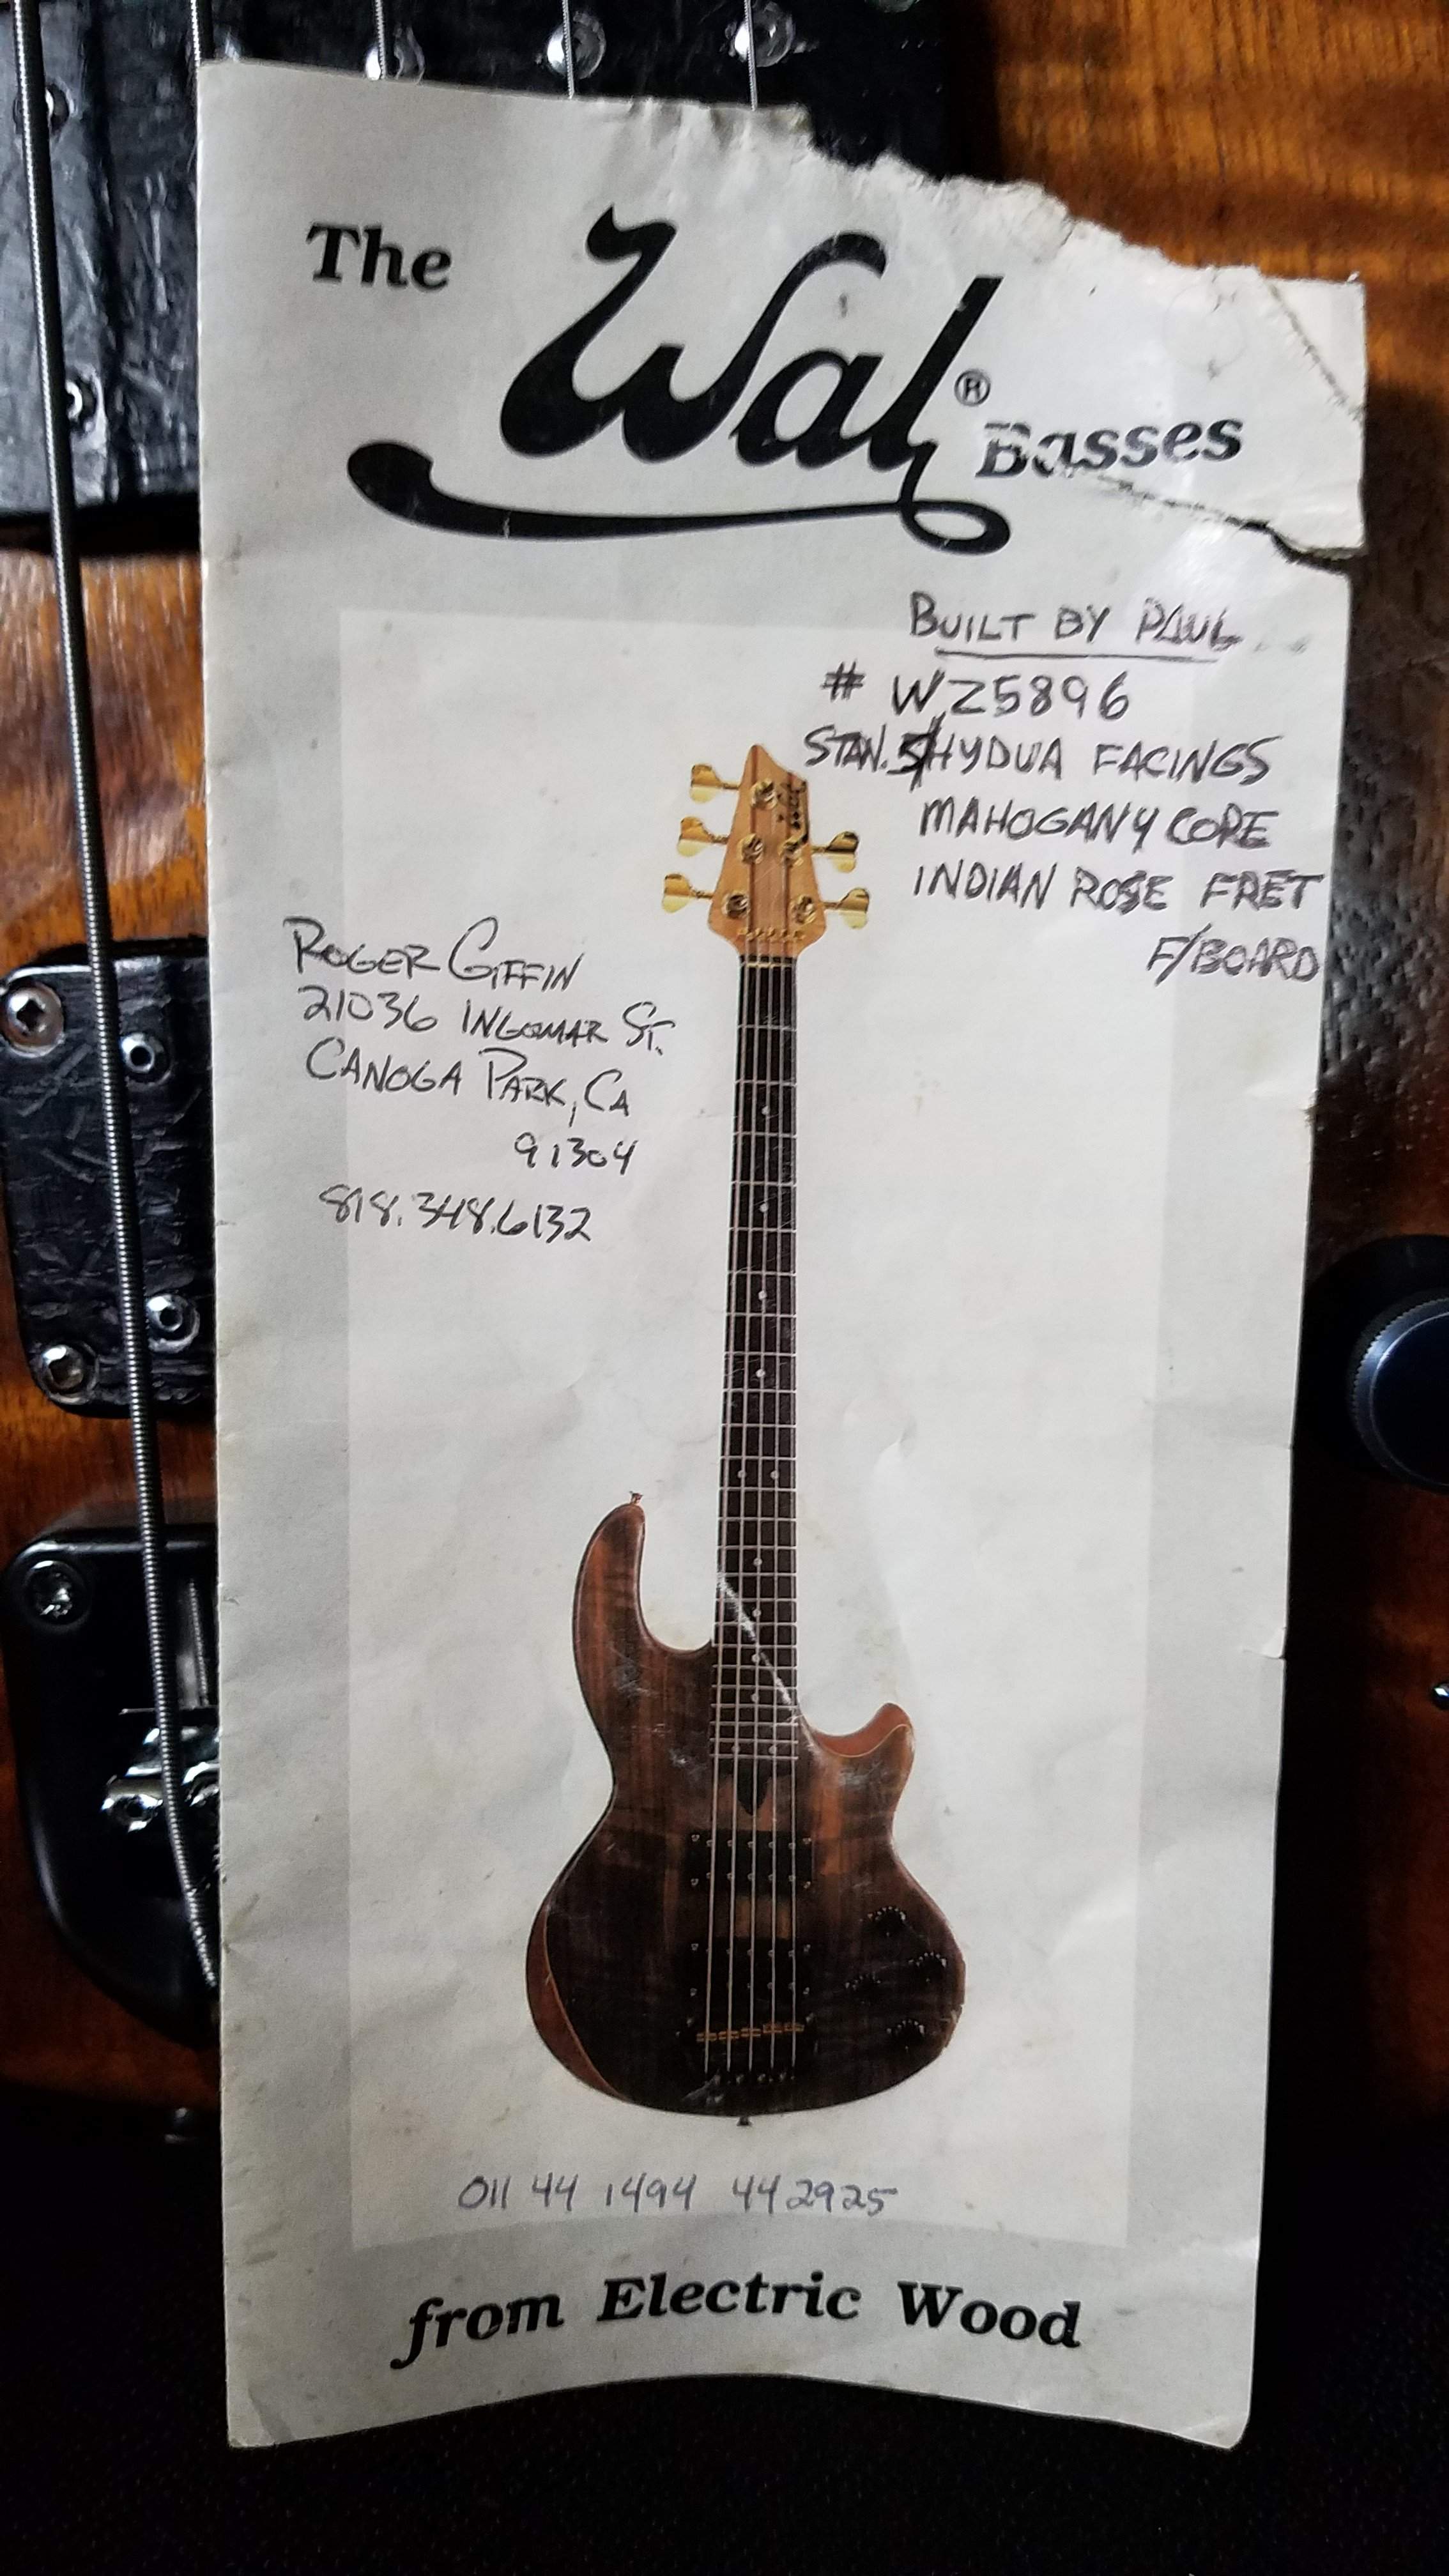 The Wal® Basses
BUILT BY PAUL
# WZ5896
STAN. 5/HYDUA FACINGS
MAHOGANY CORE
INDIAN ROSE FRET
F/BOARD
ROGER GIFFIN
21036 INGOMAR ST.
CANOGA PARK, CA
91304
818.348.6132
011 44 1494 442925
from Electric Wood